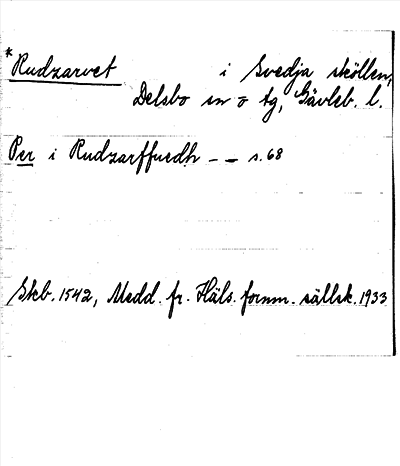 *Rudzarvet i Svedja sköllen,
Delsbo sn o tg, Gävleb. l.
Per i Rudzarffuedh - - s. 68
Skb. 1542, Medd. fr. Häls. fornm. sällsk. 1933